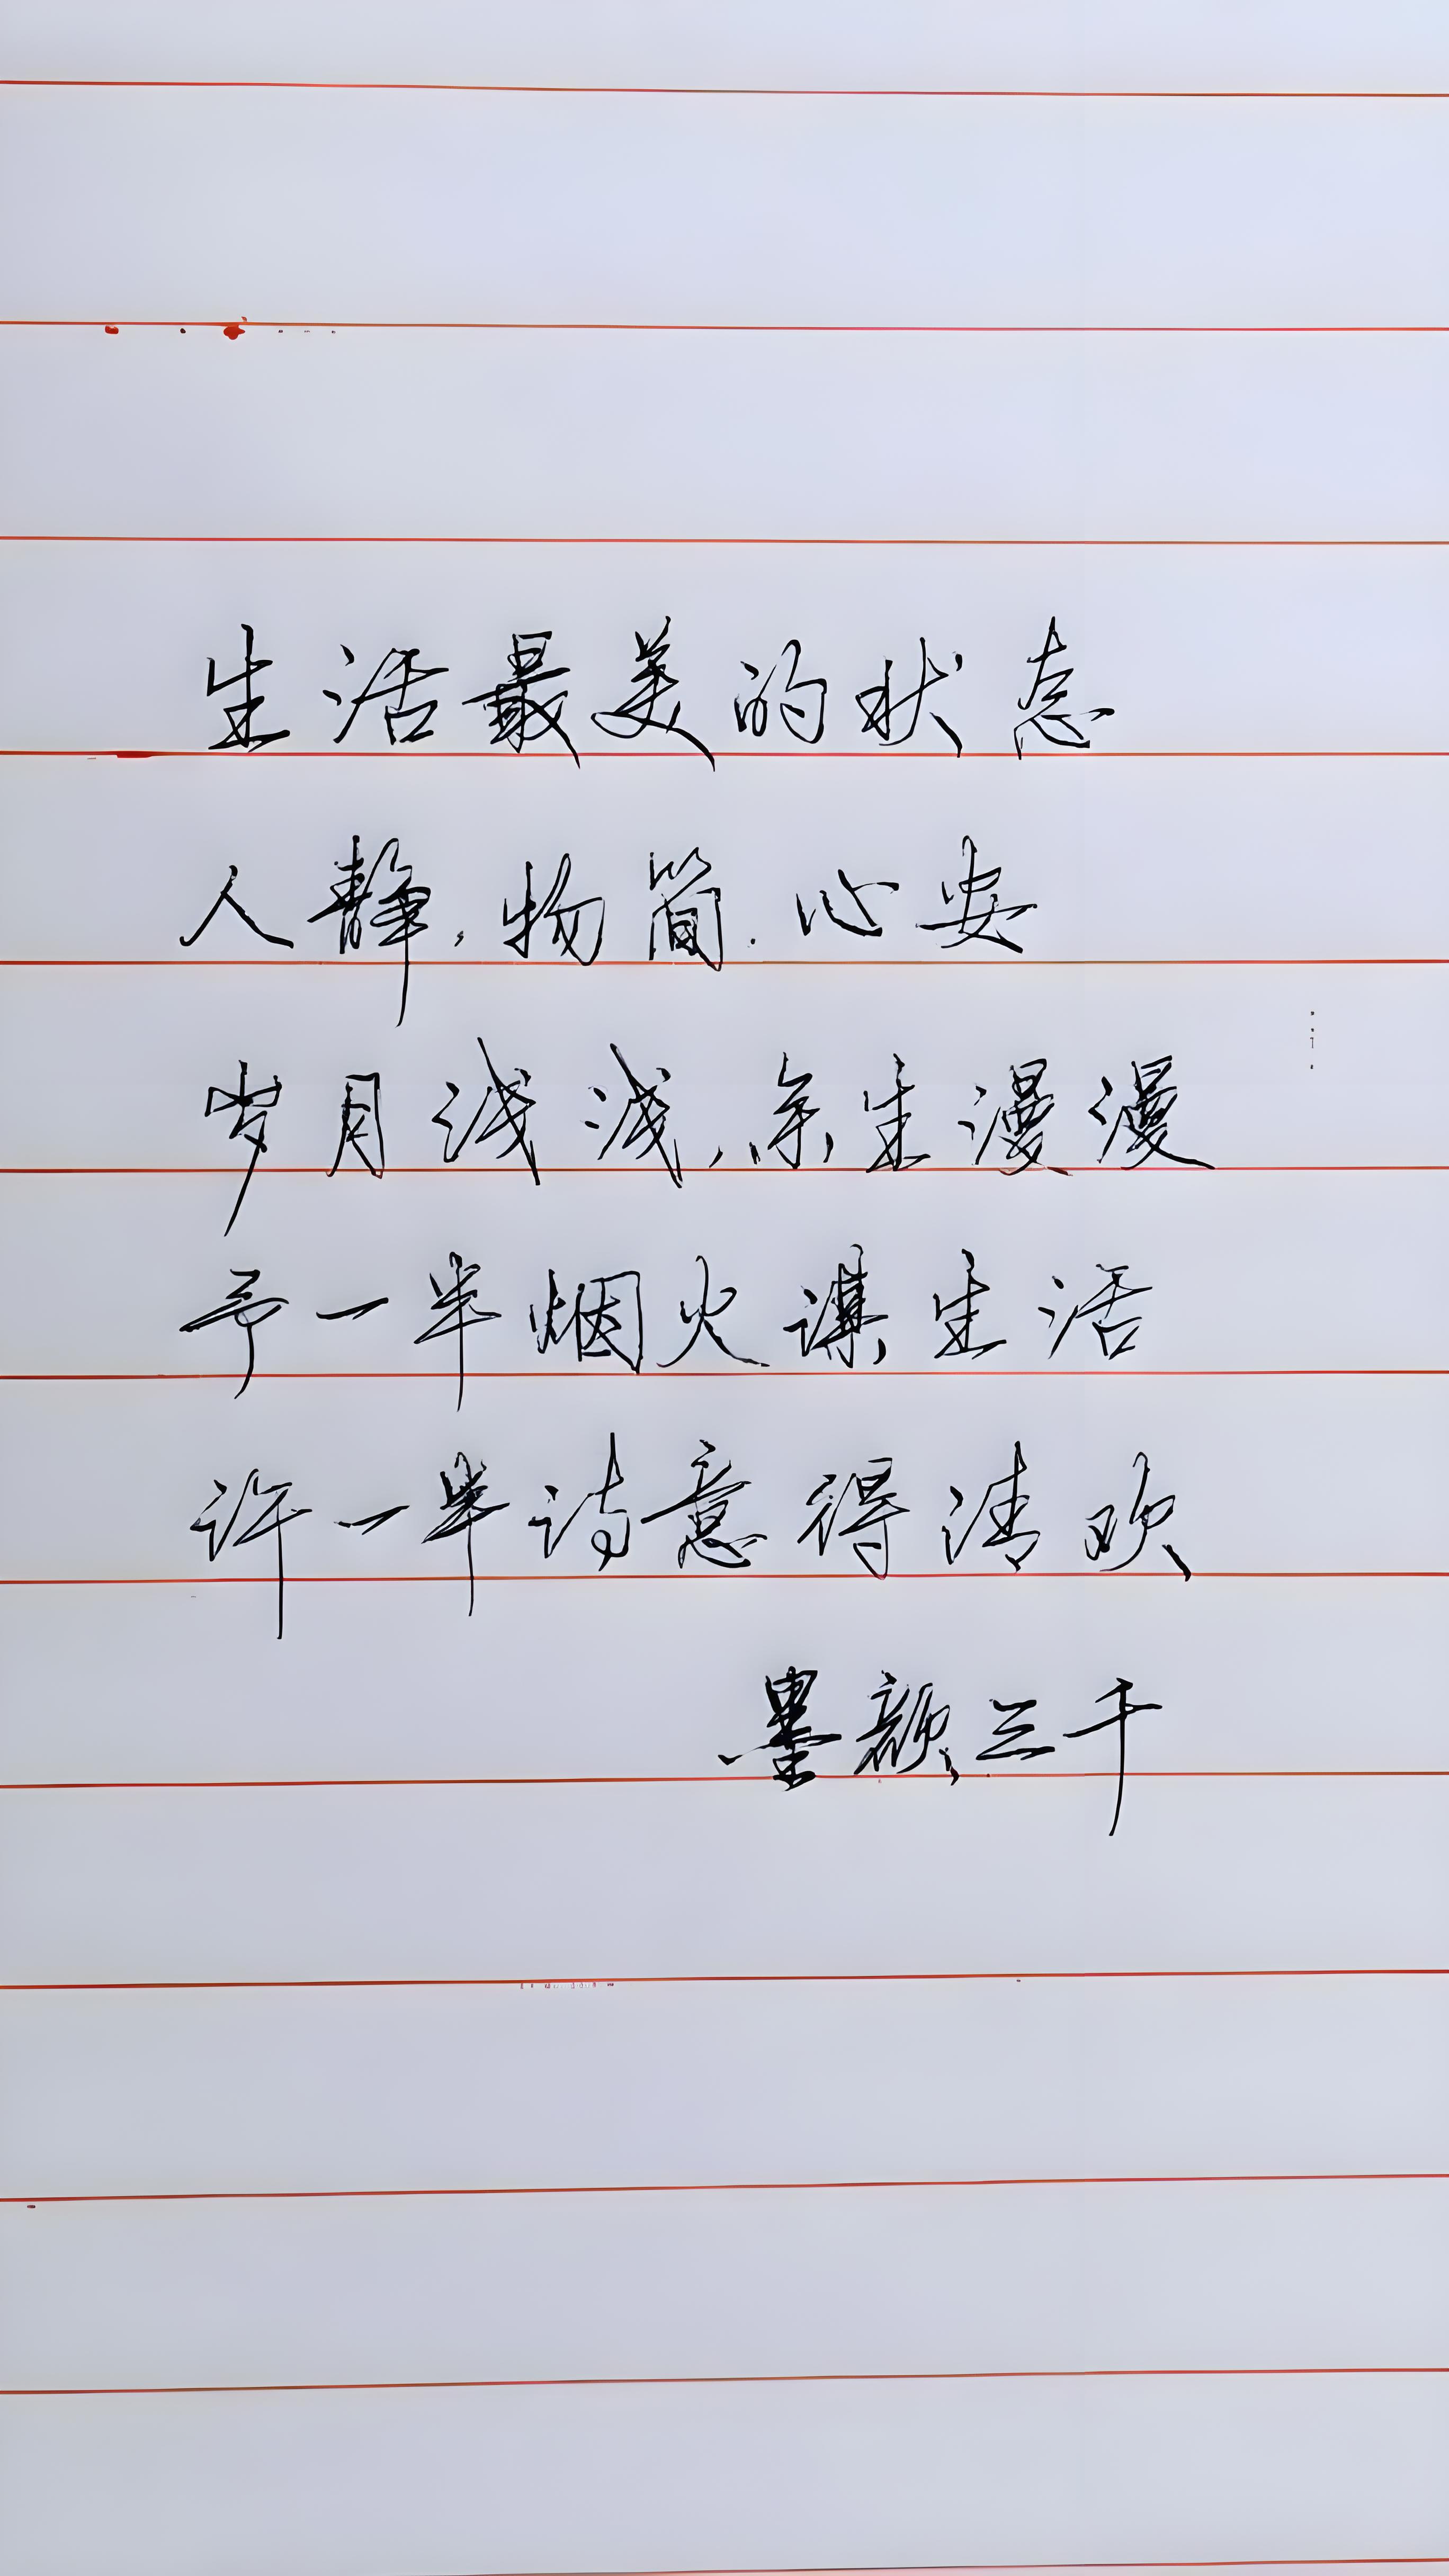 生活最美的状态
人静,物简.心安
岁月浅浅,余生漫漫
予一半烟火谋生活
许一半诗意得清欢
墨颜三千